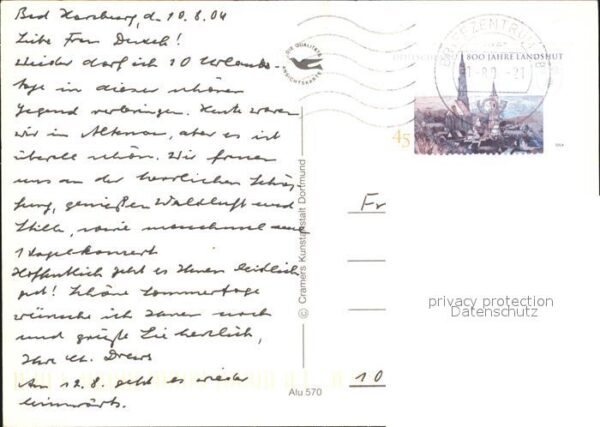 Bad Harzburg, d. 10.8.04
Liebe Frau Deisel!
Wieder darf ich 10 Urlaubs-
tage in dieser schönen
Gegend verbringen. Heute waren
wir in Altenau, aber es ist
überall schön. Wir freuen
uns an der herrlichen Schöp-
fung, genießen Waldluft und
Stille, sowie manchmal auch
1 Vogelkonzert
Hoffentlich geht es Ihnen leidlich
gut! Schöne Sommertage
wünsche ich Ihnen noch
und grüße Sie herzlich,
Ihre Ch. Drews
Am 12.8. geht es wieder
heimwärts.
DIE QUALITÄTS
ANSICHTSKARTE
© Cramers Kunstanstalt Dortmund
Alu 570
BRIEFZENTRUM
800 JAHRE LANDSHUT
45
Fr
10
privacy protection
Datenschutz